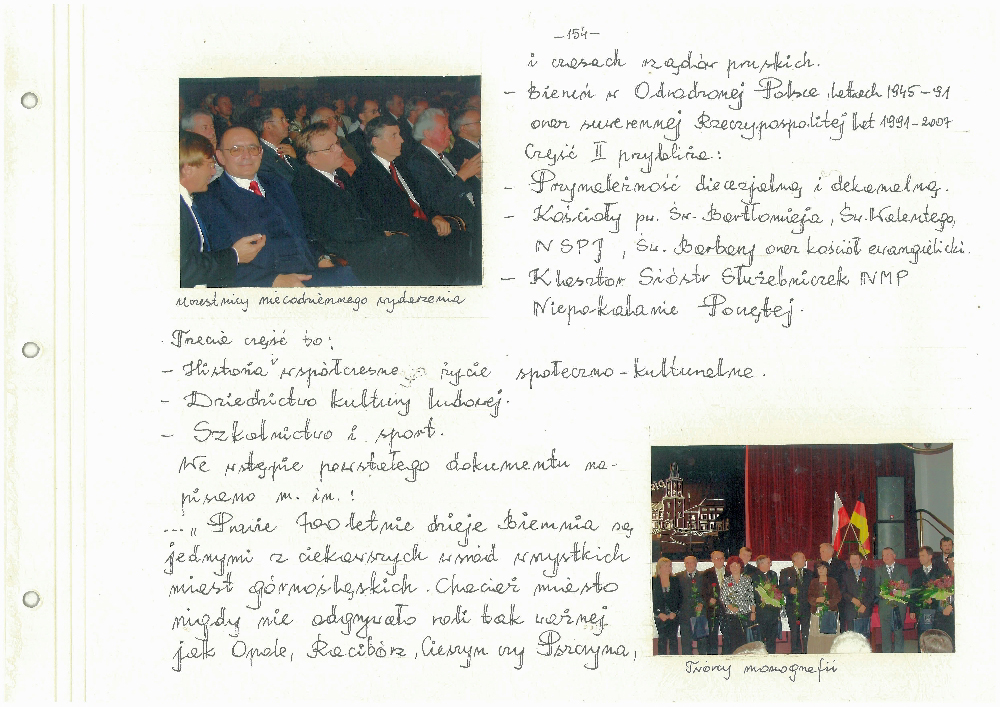 -154-
i czasach rządów pruskich.
- Bieruń w Odrodzonej Polsce, latach 1945-91
oraz suwerennej Rzeczypospolitej lat 1991-2007
Część II przybliża:
- Przynależność diecezjalną i dekanalną.
- Kościoły pw. Św. Bartłomieja, Św. Walentego,
NSPJ, Św. Barbary oraz kościół ewangielicki.
- Klasztor Sióstr Służebniczek NMP
Niepokalanie Poczętej.
Uczestnicy niecodziennego wydarzenia
Trzecia część to:
- Historia współczesne życie społeczno-kulturalne.
- Dziedzictwo kultury ludowej.
- Szkolnictwo i sport.
We wstępie powstałego dokumentu na-
pisano m. in.:
... „Prawie 700 letnie dzieje Bierunia są
jednymi z ciekawszych wśród wszystkich
miast górnośląskich. Chociaż miasto
nigdy nie odgrywało roli tak ważnej
jak Opole, Racibórz, Cieszyn czy Pszczyna,
Twórcy monografii